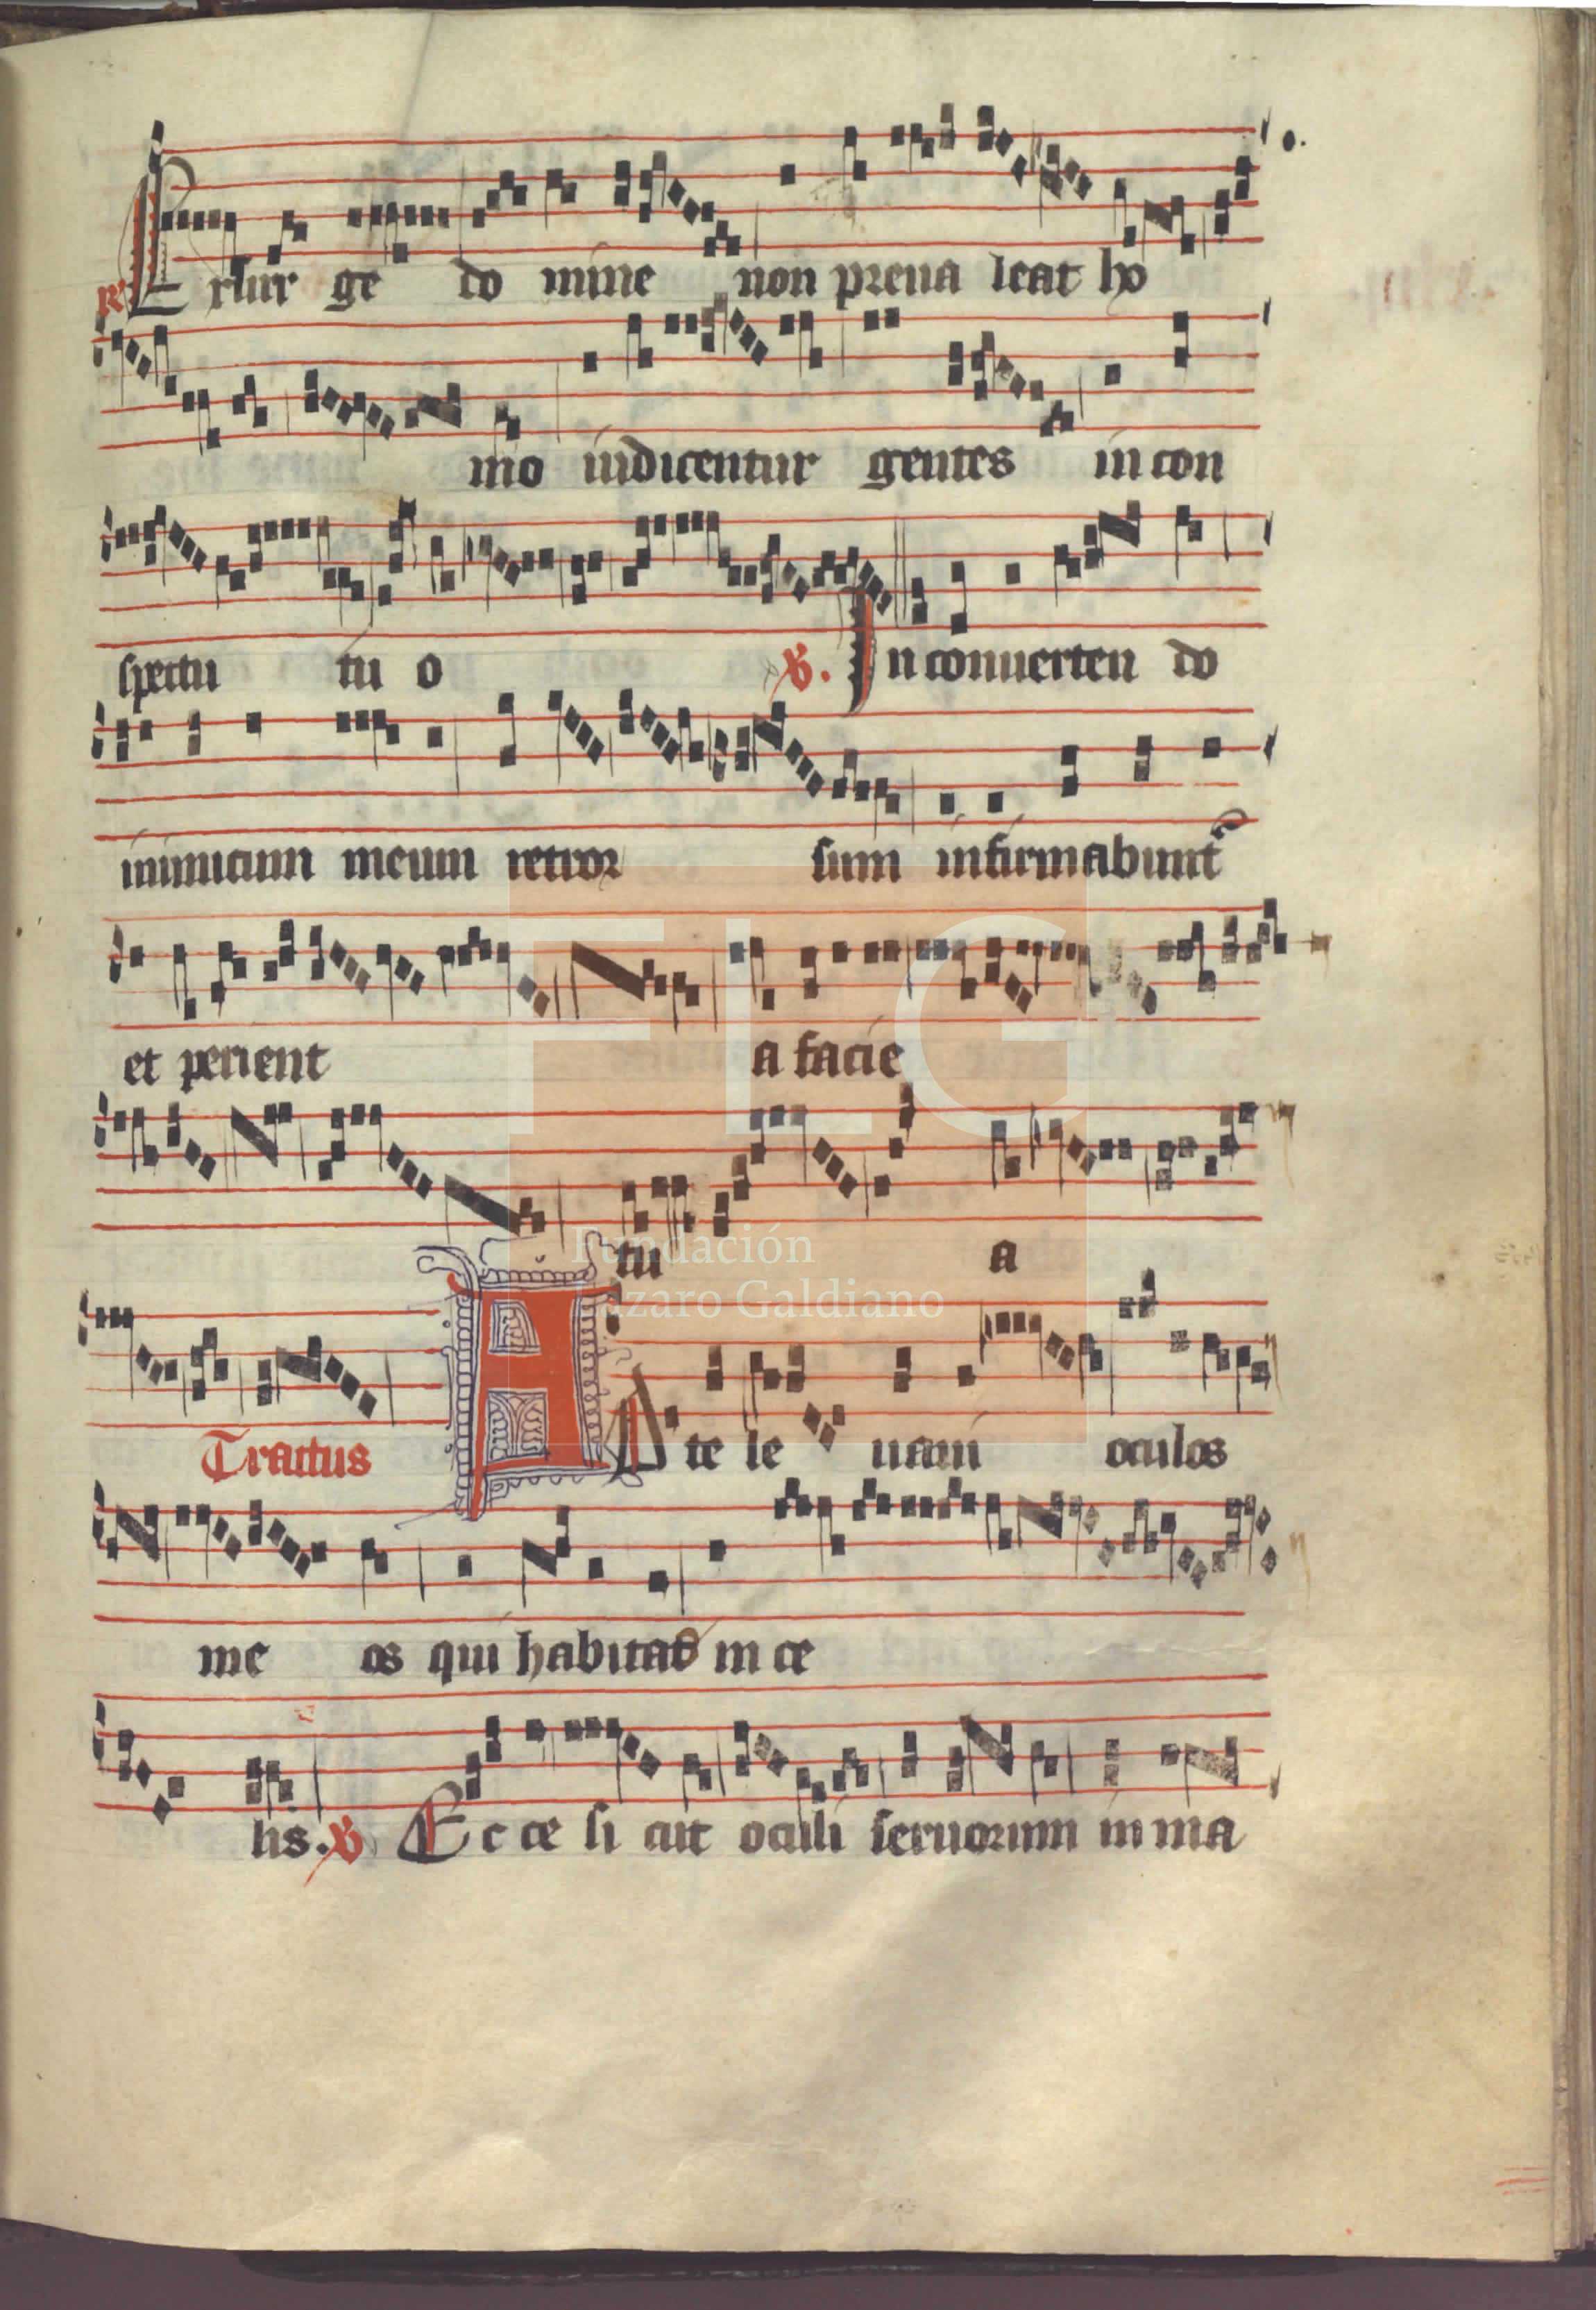 R. Exsur ge do mine non preua leat ho
mo iudicentur gentes in con
spectu tu o V. In conuerten do
inimicum meum retror sum infirmabunt
et perient a facie
tu a
Tractus Ad te le uaui oculos
me os qui habitas in ce
lis. V Ec ce si cut oculi seruorum in ma
FLG
Fundación
Lázaro Galdiano